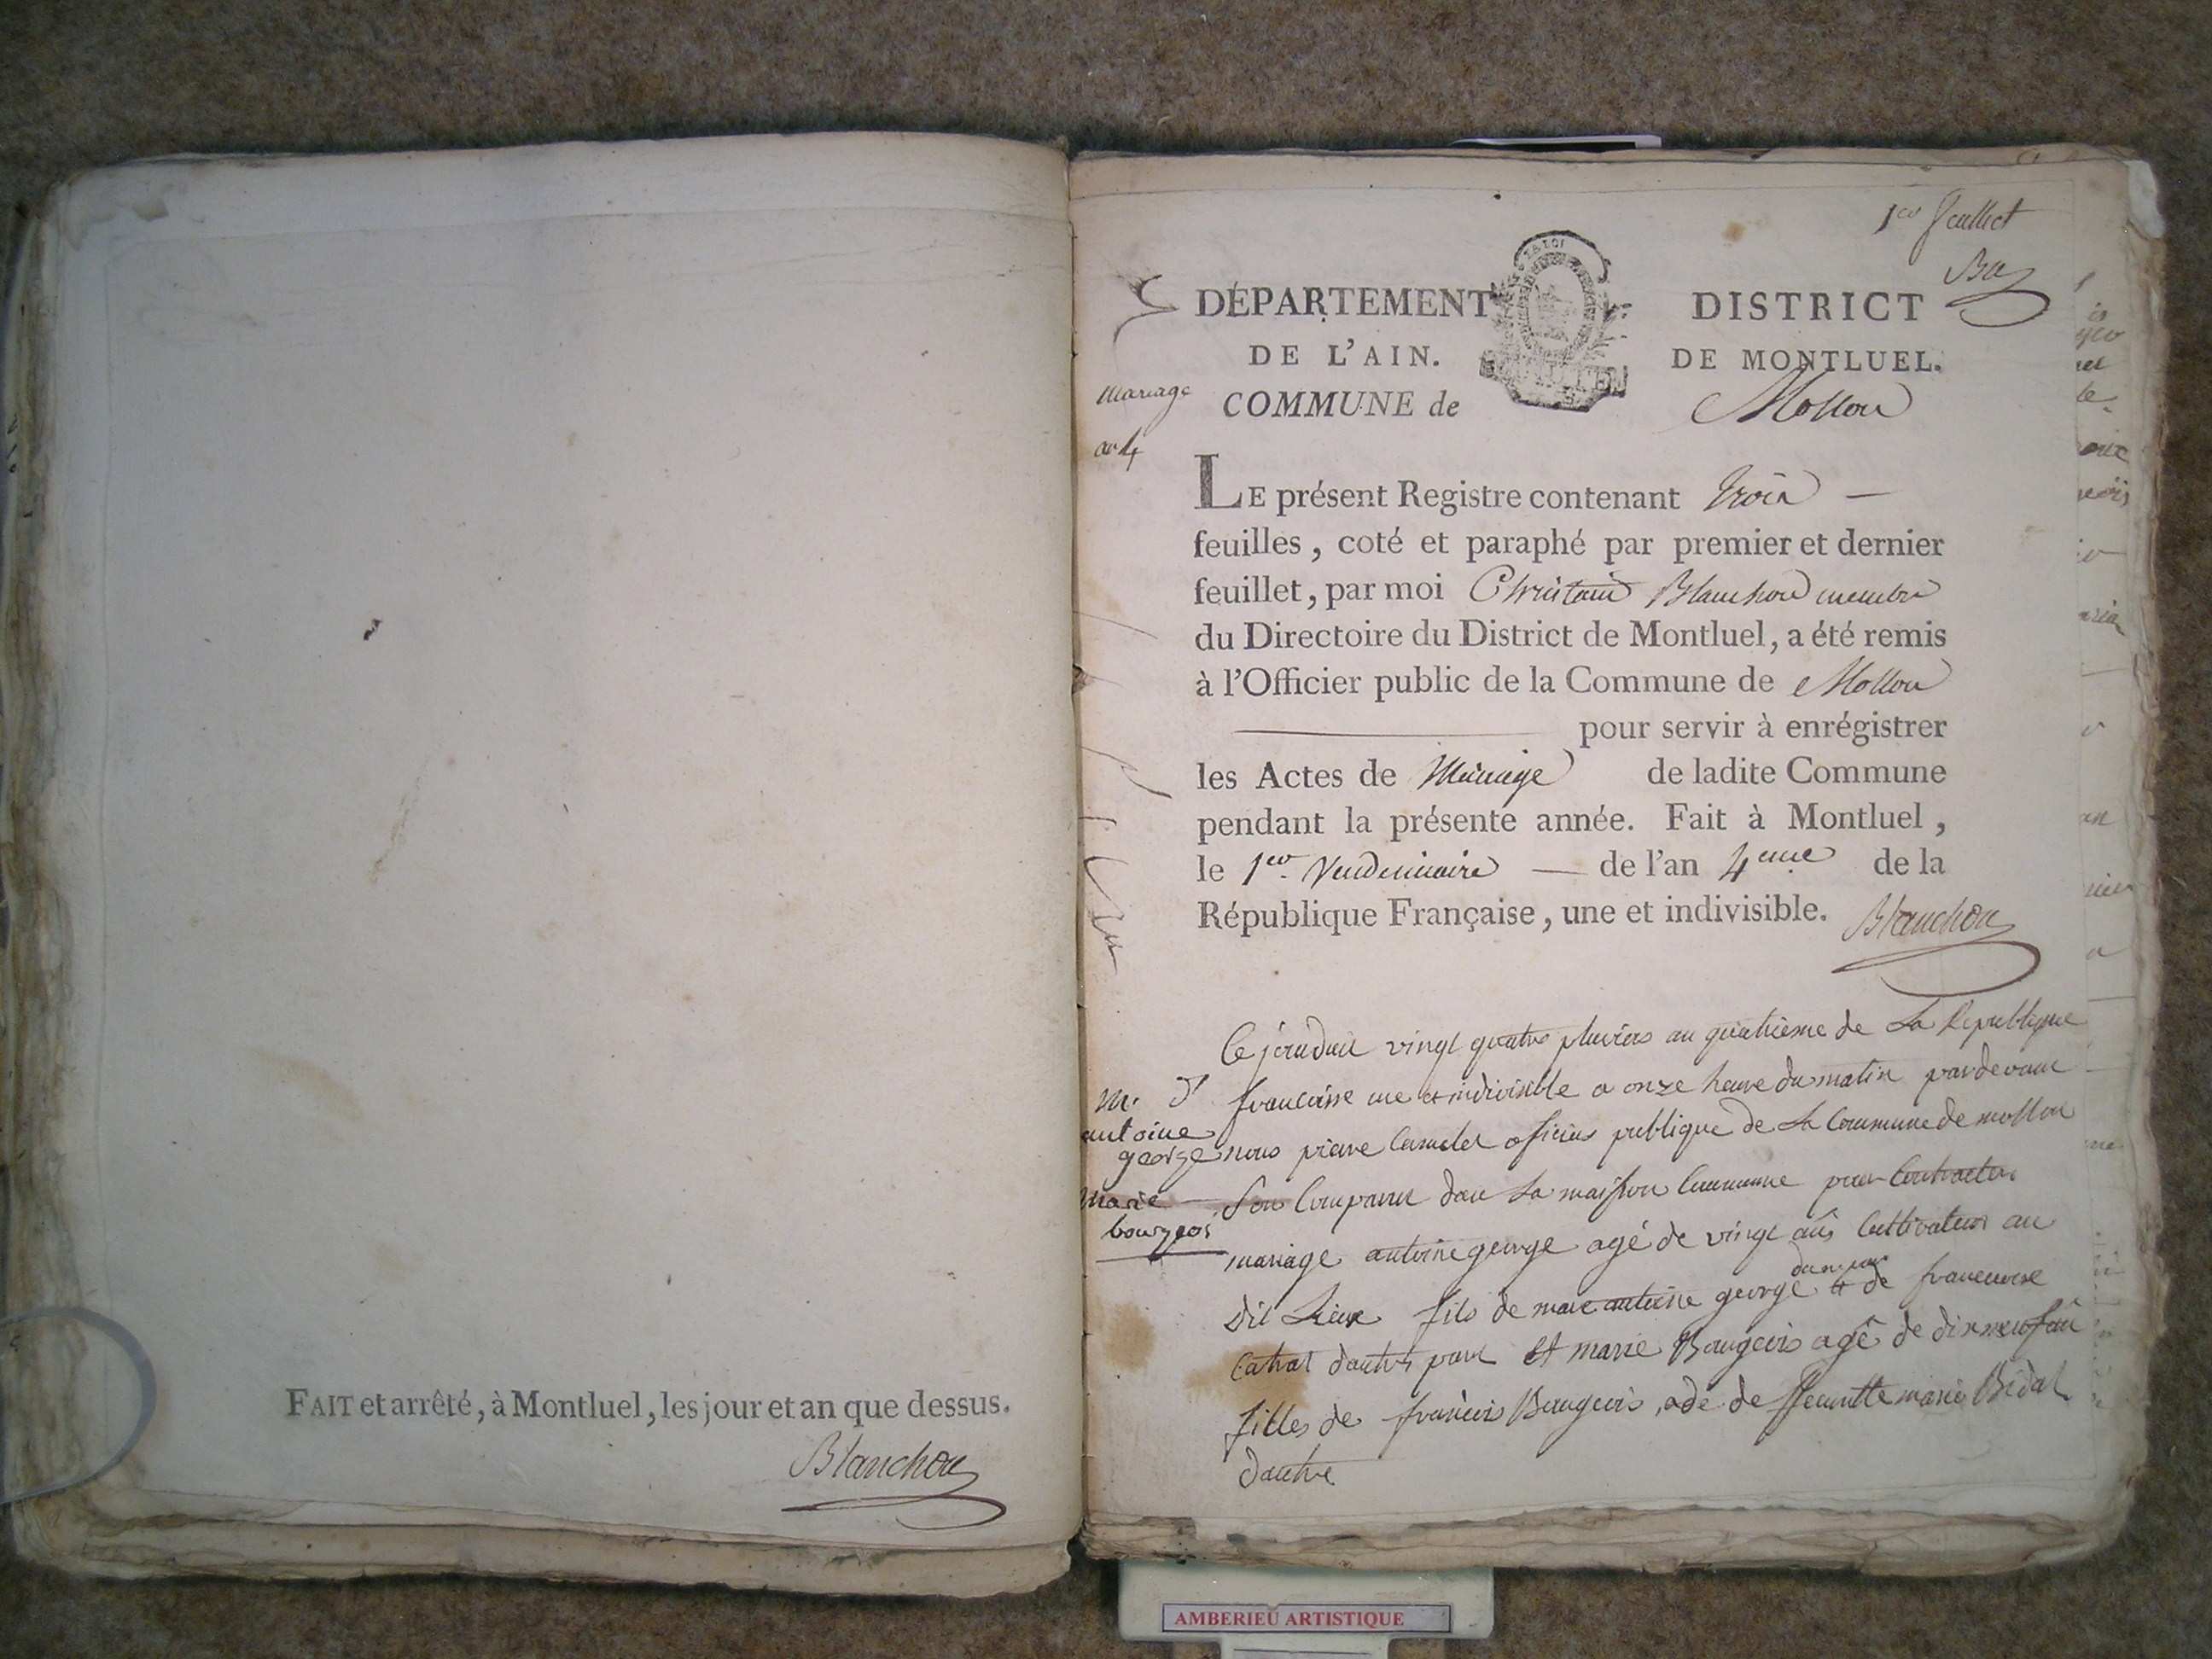 FAIT et arrêté, à Montluel, les jour et an que dessus.
Blanchon
1er feuillet
DÉPARTEMENT
DE L'AIN.
COMMUNE de
LA LOI
DISTRICT
DE MONTLUEL.
Mollon
Mariage
an 4
LE présent Registre contenant trois —
feuilles, coté et paraphé par premier et dernier
feuillet, par moi Blanchon membre
du Directoire du District de Montluel, a été remis
à l'Officier public de la Commune de Mollon
pour servir à enrégistrer
les Actes de Mariage de ladite Commune
pendant la présente année. Fait à Montluel,
le 1er Vendemiaire — de l'an 4eme de la
République Française, une et indivisible.
Blanchon
M.
antoine
george
Marie
bourgeois
Ce jourduit vingt quatre pluvios an quatrieme de La Republique
francoisse une et indivisible a onze heure du matin pardevant
nous pierre oficier publique de La Commune de mollon
Son Comparut dans La maison Commune pour Contracter
mariage antoine george agé de vingt ans Cultivateur au
dit Lieux fils de marc antoine george et de francoise
dune par
Catras dautre part Et marie Bourgeois agé de dix neuf an
filles de francois Bourgeois, ade de marie Bidal
dautre
AMBERIEU ARTISTIQUE